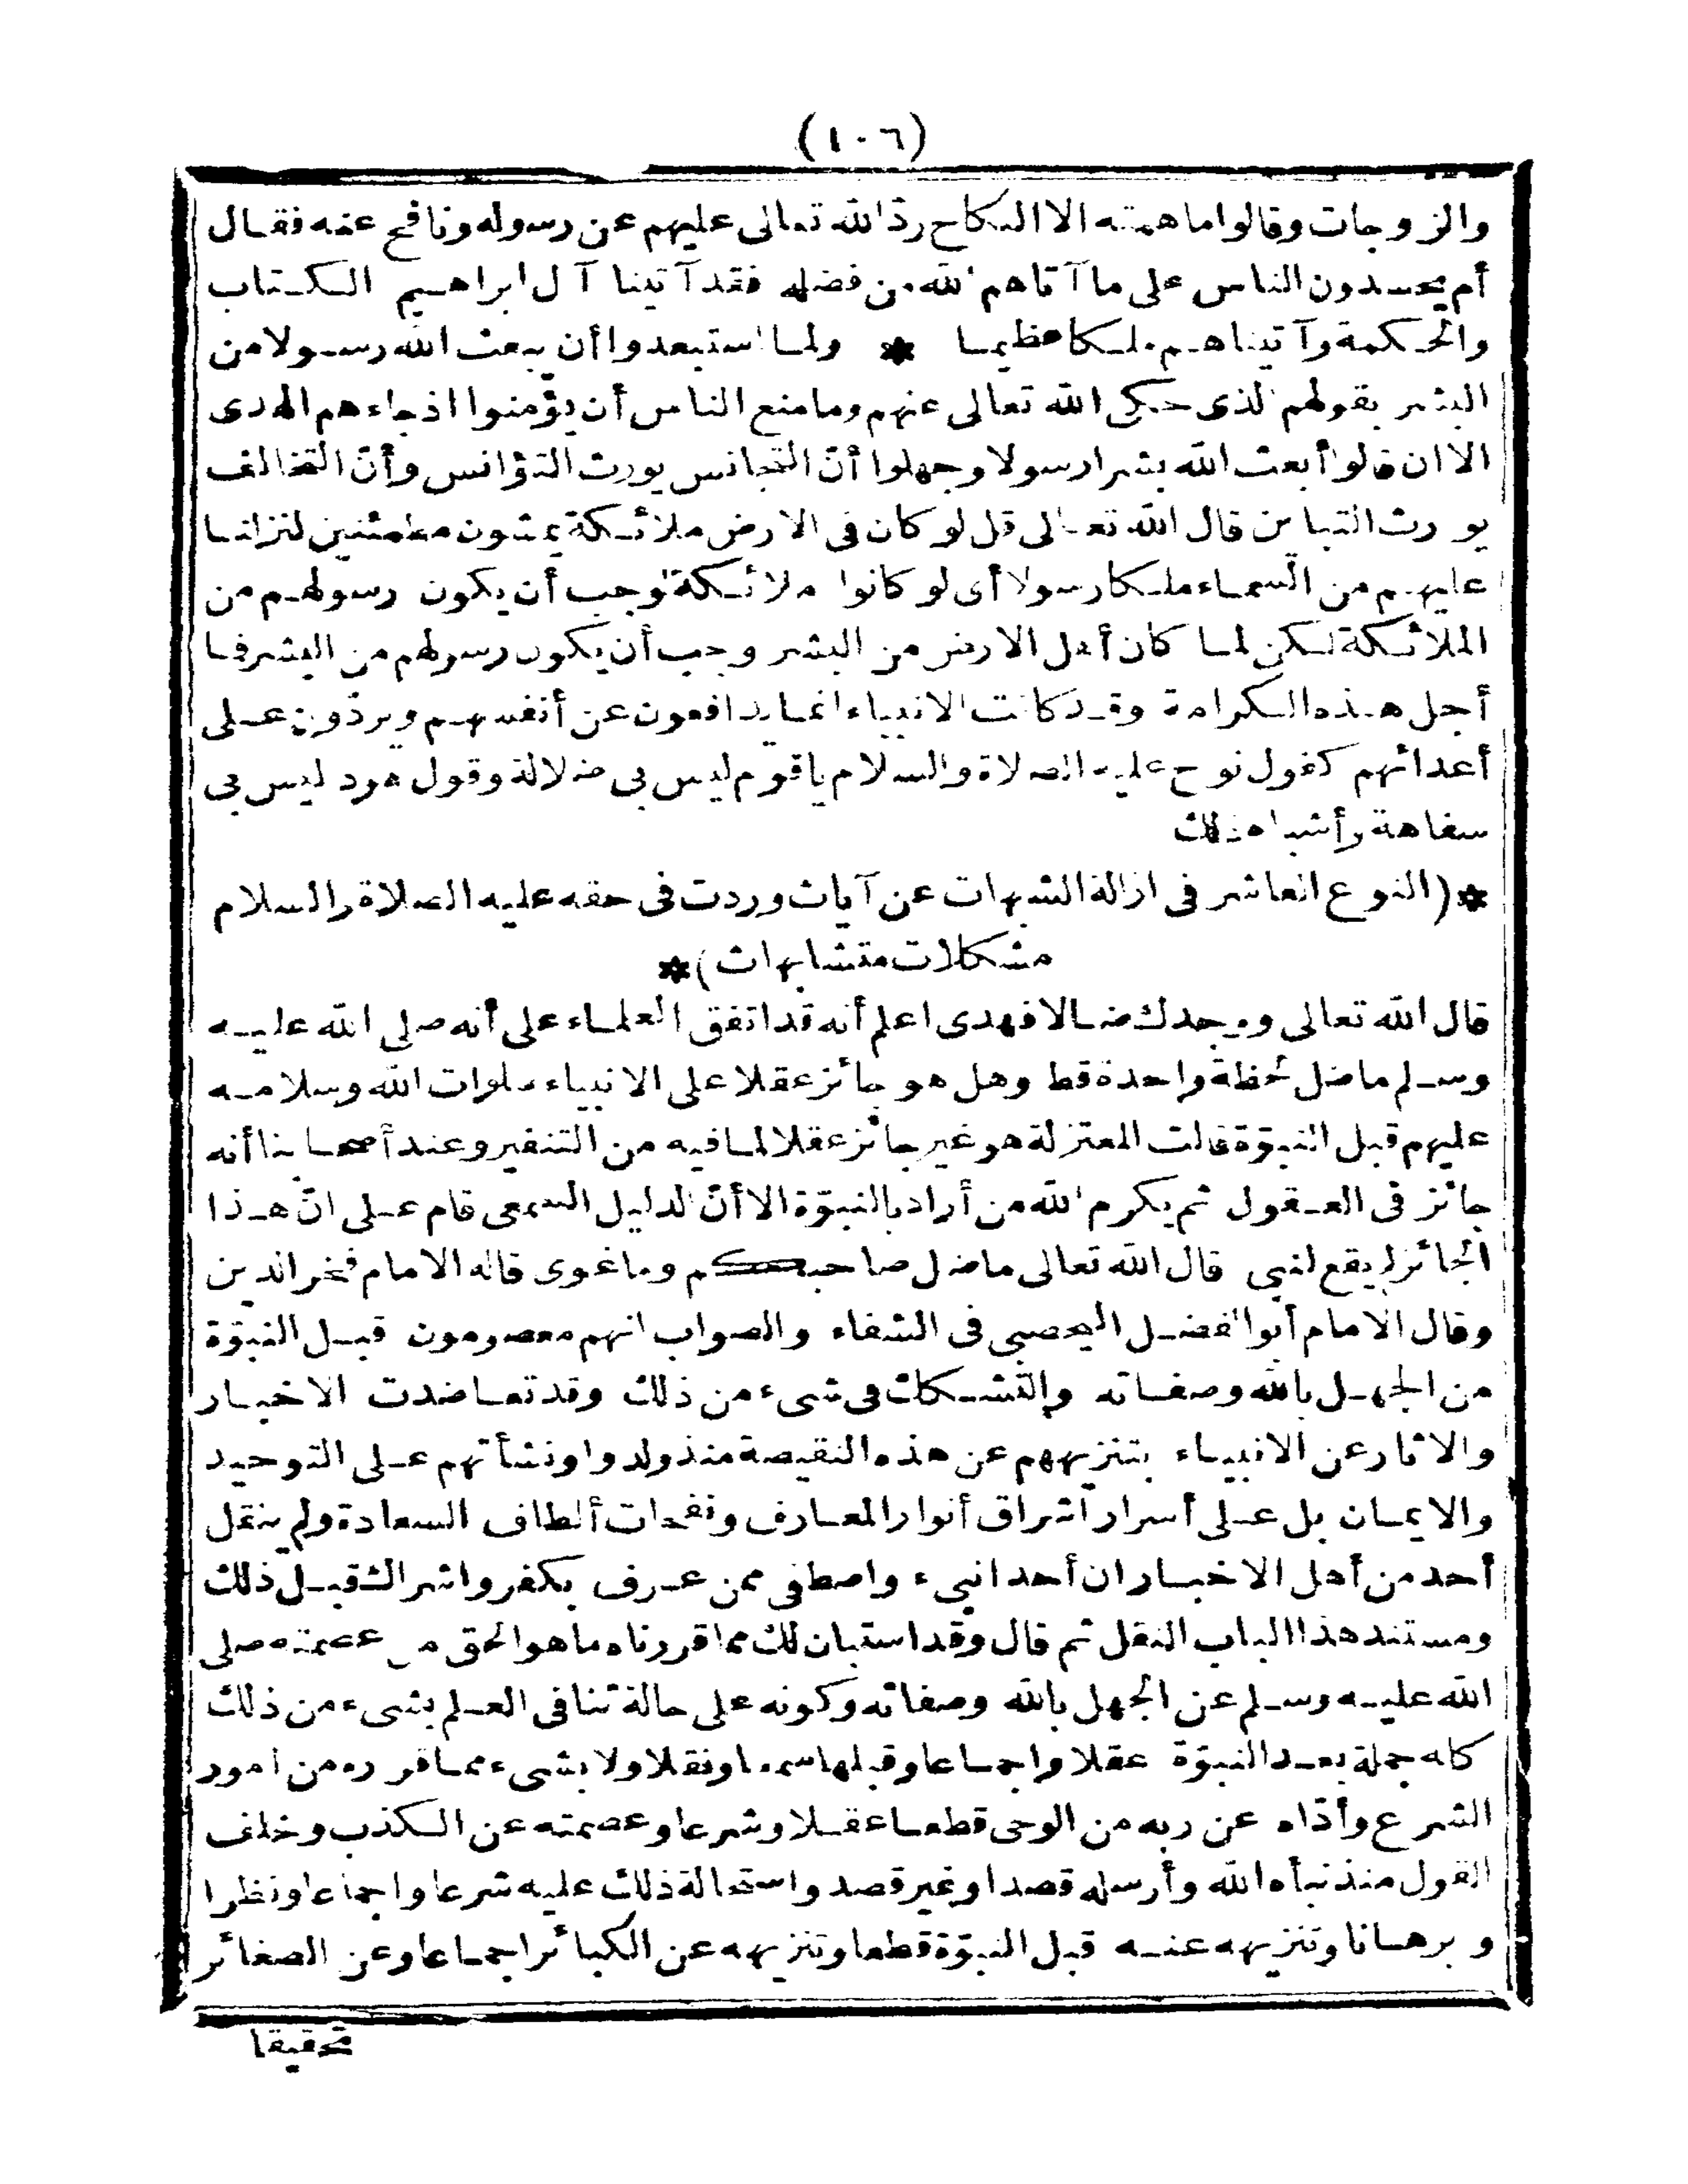 (١٠٦)
والزوجات وقالوا ما همته الا النكاح ردّ الله تعالى عليهم عن رسوله ونافح عنه فقال
أم يحسدون الناس على ما آتاهم الله من فضله فقد آتينا آل ابراهيم الكتاب
والحكمة وآتيناهم ملكا عظيما * ولما استبعدوا أن يبعث الله رسولا من
البشر بقولهم الذى حكى الله تعالى عنهم وما منع الناس أن يؤمنوا اذ جاءهم الهدى
الا ان قالوا أبعث الله بشرا رسولا وجهلوا أنّ التجانس يورث التؤانس وأنّ التخالف
يورث التباين قال الله تعالى قل لو كان فى الارض ملائكة يمشون مطمئنين لنزلنا
عليهم من السماء ملكا رسولا أى لو كانوا ملائكة لوجب أن يكون رسولهم من
الملائكة لكن لما كان أهل الارض من البشر وجب أن يكون رسولهم من البشر فما
أجل هذه الكرامة وقد كانت الانبياء انما يدافعون عن أنفسهم ويردّون على
أعدائهم كقول نوح عليه الصلاة والسلام يا قوم ليس بى ضلالة وقول هود ليس بى
سفاهة وأشباه ذلك
*(النوع العاشر فى ازالة الشبهات عن آيات وردت فى حقه عليه الصلاة والسلام
مشكلات متشابهات)*
قال الله تعالى ووجدك ضالا فهدى اعلم أنه قد اتفق العلماء على أنه صلى الله عليه
وسلم ما ضل لحظة واحدة قط وهل هو جائز عقلا على الانبياء صلوات الله وسلامه
عليهم قبل النبوّة قالت المعتزلة هو غير جائز عقلا لما فيه من التنفير وعند أصحابنا أنه
جائز فى العقول ثم يكرم الله من أراد بالنبوّة الا أنّ الدليل السمعى قام على انّ هذا
الجائز لم يقع لنبى قال الله تعالى ما ضل صاحبكم وما غوى قاله الامام فخر الدين
وقال الامام أبو الفضل اليحصبى فى الشفاء والصواب انهم معصومون قبل النبوّة
من الجهل بالله وصفاته والتشكك فى شىء من ذلك وقد تعاضدت الاخبار
والاثار عن الانبياء بتنزيههم عن هذه النقيصة منذ ولدوا ونشأتهم على التوحيد
والايمان بل على أسرار اشراق أنوار المعارف ونفحات ألطاف السعادة ولم ينقل
أحد من أهل الاخبار ان أحدا نبىء واصطفى ممن عرف بكفر واشراك قبل ذلك
ومستند هذا الباب النقل ثم قال وقد استبان لك مما قررناه ما هو الحق من عصمته صلى
الله عليه وسلم عن الجهل بالله وصفاته وكونه على حالة تنافى العلم بشىء من ذلك
كله جملة بعد النبوّة عقلا واجماعا وقبلها سمعا ونقلا ولا بشىء مما قرره من امور
الشرع وأدّاه عن ربه من الوحى قطعا عقلا وشرعا وعصمته عن الكذب وخلف
القول منذ نبأه الله وأرسله قصدا وغير قصد واستحالة ذلك عليه شرعا واجماعا ونظرا
وبرهانا وتنزيهه عنه قبل النبوّة قطعا وتنزيهه عن الكبائر اجماعا وعن الصغائر
تحقيقا